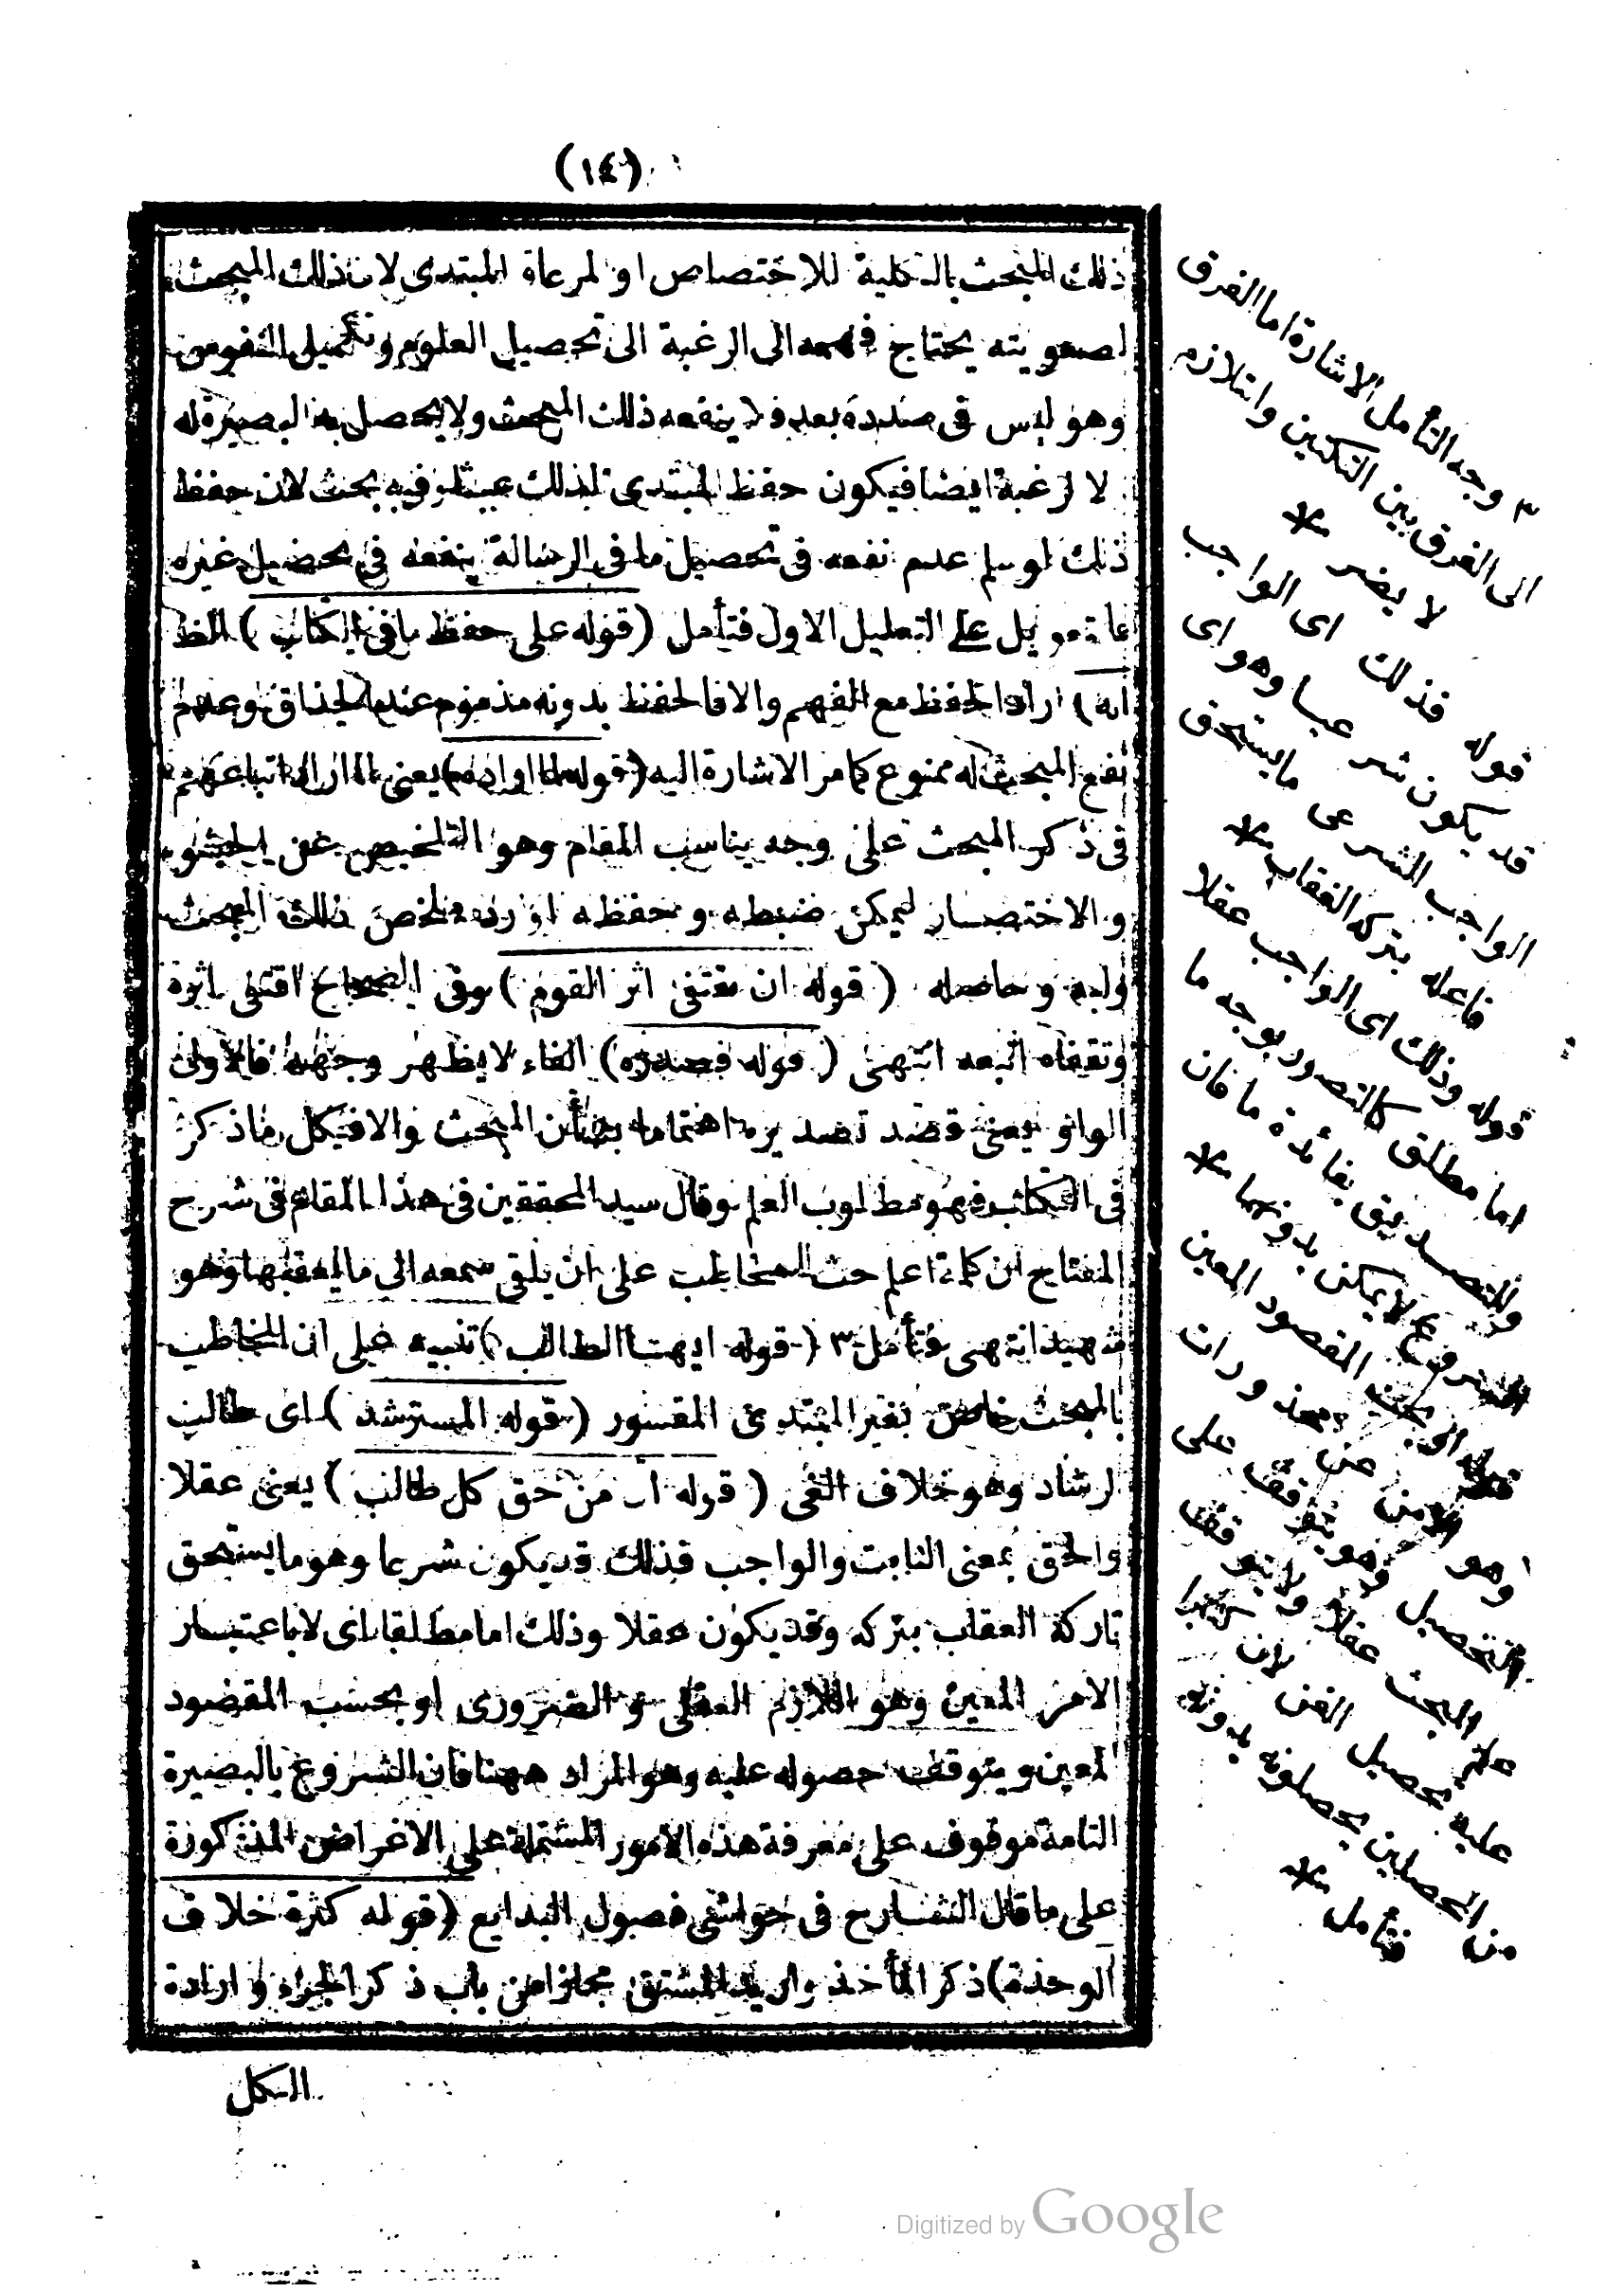 (١٤)
ذلك المبحث بالكلية للاختصاص او لمرعاة المبتدى لان ذلك المبحث
لصعوبته يحتاج فهمه الى الرغبة الى تحصيل العلوم وتكميل النفوس
وهو ليس فى صدده بعد فلا ينفعه ذلك المبحث ولا يحصل به البصيرة له
لا لرغبة ايضا فيكون حفظ المبتدى لذلك عبثا وفيه بحث لان حفظ
ذلك لو سلم عدم نفعه فى تحصيل ما فى الرسالة ينفعه فى تحصيل غيره
على التعليل الاول فتأمل (قوله على حفظ ما فى الكتاب) الظ
انه) اراد الحفظ مع الفهم والا فالحفظ بدونه مذموم عند الحذاق وعدم
نفع المبحث له ممنوع كما مر الاشارة اليه (قوله لما اراد) يعنى لما اراد اتباعهم
فى ذكر المبحث على وجه يناسب المقام وهو التلخيص عن الحشو
والاختصار ليمكن ضبطه وحفظه اورد ملخص ذلك المبحث
ولبه وحاصله (قوله ان نقتفى اثر القوم) وفى الصحاح اقتفى اثره
وتقفاه اتبعه انتهى (قوله فصدره) الفاء لا يظهر وجهه فالاولى
الواو يعنى قصد تصديره اهتماما بشأن المبحث والا فكل ما ذكر
فى الكتاب فهو مطلوب العلم وقال سيد المحققين فى هذا المقام فى شرح
المفتاح ان كلمة اعلم حث المخاطب على ان يلقى سمعه الى ما يعقبها وهو
تمهيد انتهى فتأمل ٣ (قوله ايها الطالب) تنبيه على ان المخاطب
بالمبحث خاص بغير المبتدئ المقسور (قوله المسترشد) اى طالب
الرشاد وهو خلاف الغى (قوله ان من حق كل طالب) يعنى عقلا
والحق بمعنى الثابت والواجب فذلك قد يكون شرعيا وهو ما يستحق
تاركه العقاب بتركه وقد يكون عقلا وذلك اما مطلقا اى لا باعتبار
الامر المعين وهو اللازم العقلى والضرورى او بحسب المقصود
المعين ويتوقف حصوله عليه وهو المراد ههنا فان الشروع بالبصيرة
التامة موقوف على معرفة هذه الامور المشتملة على الاغراض المذكورة
على ما قال الشارح فى حواشى فصول البدايع (قوله كثرة خلاف
الوحدة) ذكر المأخذ واريد المشتق مجازا من باب ذكر الجزء وارادة
الكل
٣ وجه التأمل الاشارة اما الفرق
الى الفرق بين النكتين وانتلازم
لا يضر *
قوله فذلك اى الواجب
قد يكون شرعيا وهو اى
الواجب الشرعى ما يستحق
فاعله بتركه العقاب *
قوله وذلك اى الواجب عقلا
اما مطلق كالتصور بوجه ما
والتصديق بفائدة ما فان
الشروع لا يمكن بدونهما *
المقصود المعين
التحصيل وهو يتوقف على
المبحث عقلا ولا يتوقف
عليه تحصيل الفن لان كثيرا
من المحصلين يحصلونه بدونه
فتأمل *
Digitized by Google